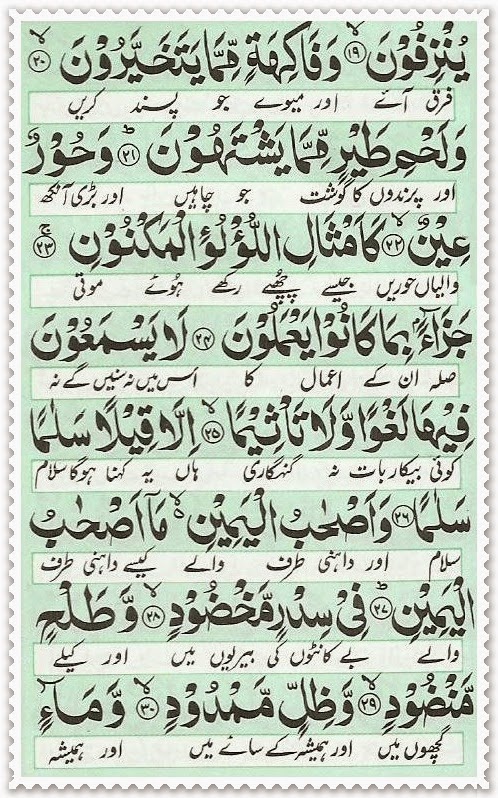 يُنْزِفُوْنَ ﴿۱۹﴾ وَفَاكِهَةٍ مِّمَّا يَتَخَيَّرُوْنَ ﴿۲۰﴾
فرق آئے اور میوے جو پسند کریں
وَلَحْمِ طَيْرٍ مِّمَّا يَشْتَهُوْنَ ﴿۲۱﴾ وَحُوْرٌ
اور پرندوں کا گوشت جو چاہیں اور بڑی آنکھ
عِيْنٌ ﴿۲۲﴾ كَاَمْثَالِ اللُّؤْلُؤِ الْمَكْنُوْنِ ﴿۲۳﴾
والیاں حوریں جیسے چھپے رکھے ہوئے موتی
جَزَآءًۢ بِمَا كَانُوْا يَعْمَلُوْنَ ﴿۲۴﴾ لَا يَسْمَعُوْنَ
صلہ ان کے اعمال کا اس میں نہ سنیں گے نہ
فِيْهَا لَغْوًا وَّلَا تَاْثِيْمًا ﴿۲۵﴾ اِلَّا قِيْلًا سَلٰمًا
کوئی بیکار بات نہ گنہگاری ہاں یہ کہنا ہوگا سلام
سَلٰمًا ﴿۲۶﴾ وَاَصْحٰبُ الْيَمِيْنِ مَاۤ اَصْحٰبُ
سلام اور داہنی طرف والے کیسے داہنی طرف
الْيَمِيْنِ ﴿۲۷﴾ فِيْ سِدْرٍ مَّخْضُوْدٍ ﴿۲۸﴾ وَّطَلْحٍ
والے بے کانٹوں کی بیریوں میں اور کیلے
مَّنْضُوْدٍ ﴿۲۹﴾ وَّظِلٍّ مَّمْدُوْدٍ ﴿۳۰﴾ وَّمَآءٍ
گچھوں میں اور ہمیشہ کے سائے میں اور ہمیشہ